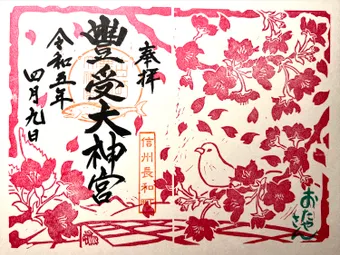 奉拝
豊受大神宮
令和五年
四月九日
信州長和町
おたやさん